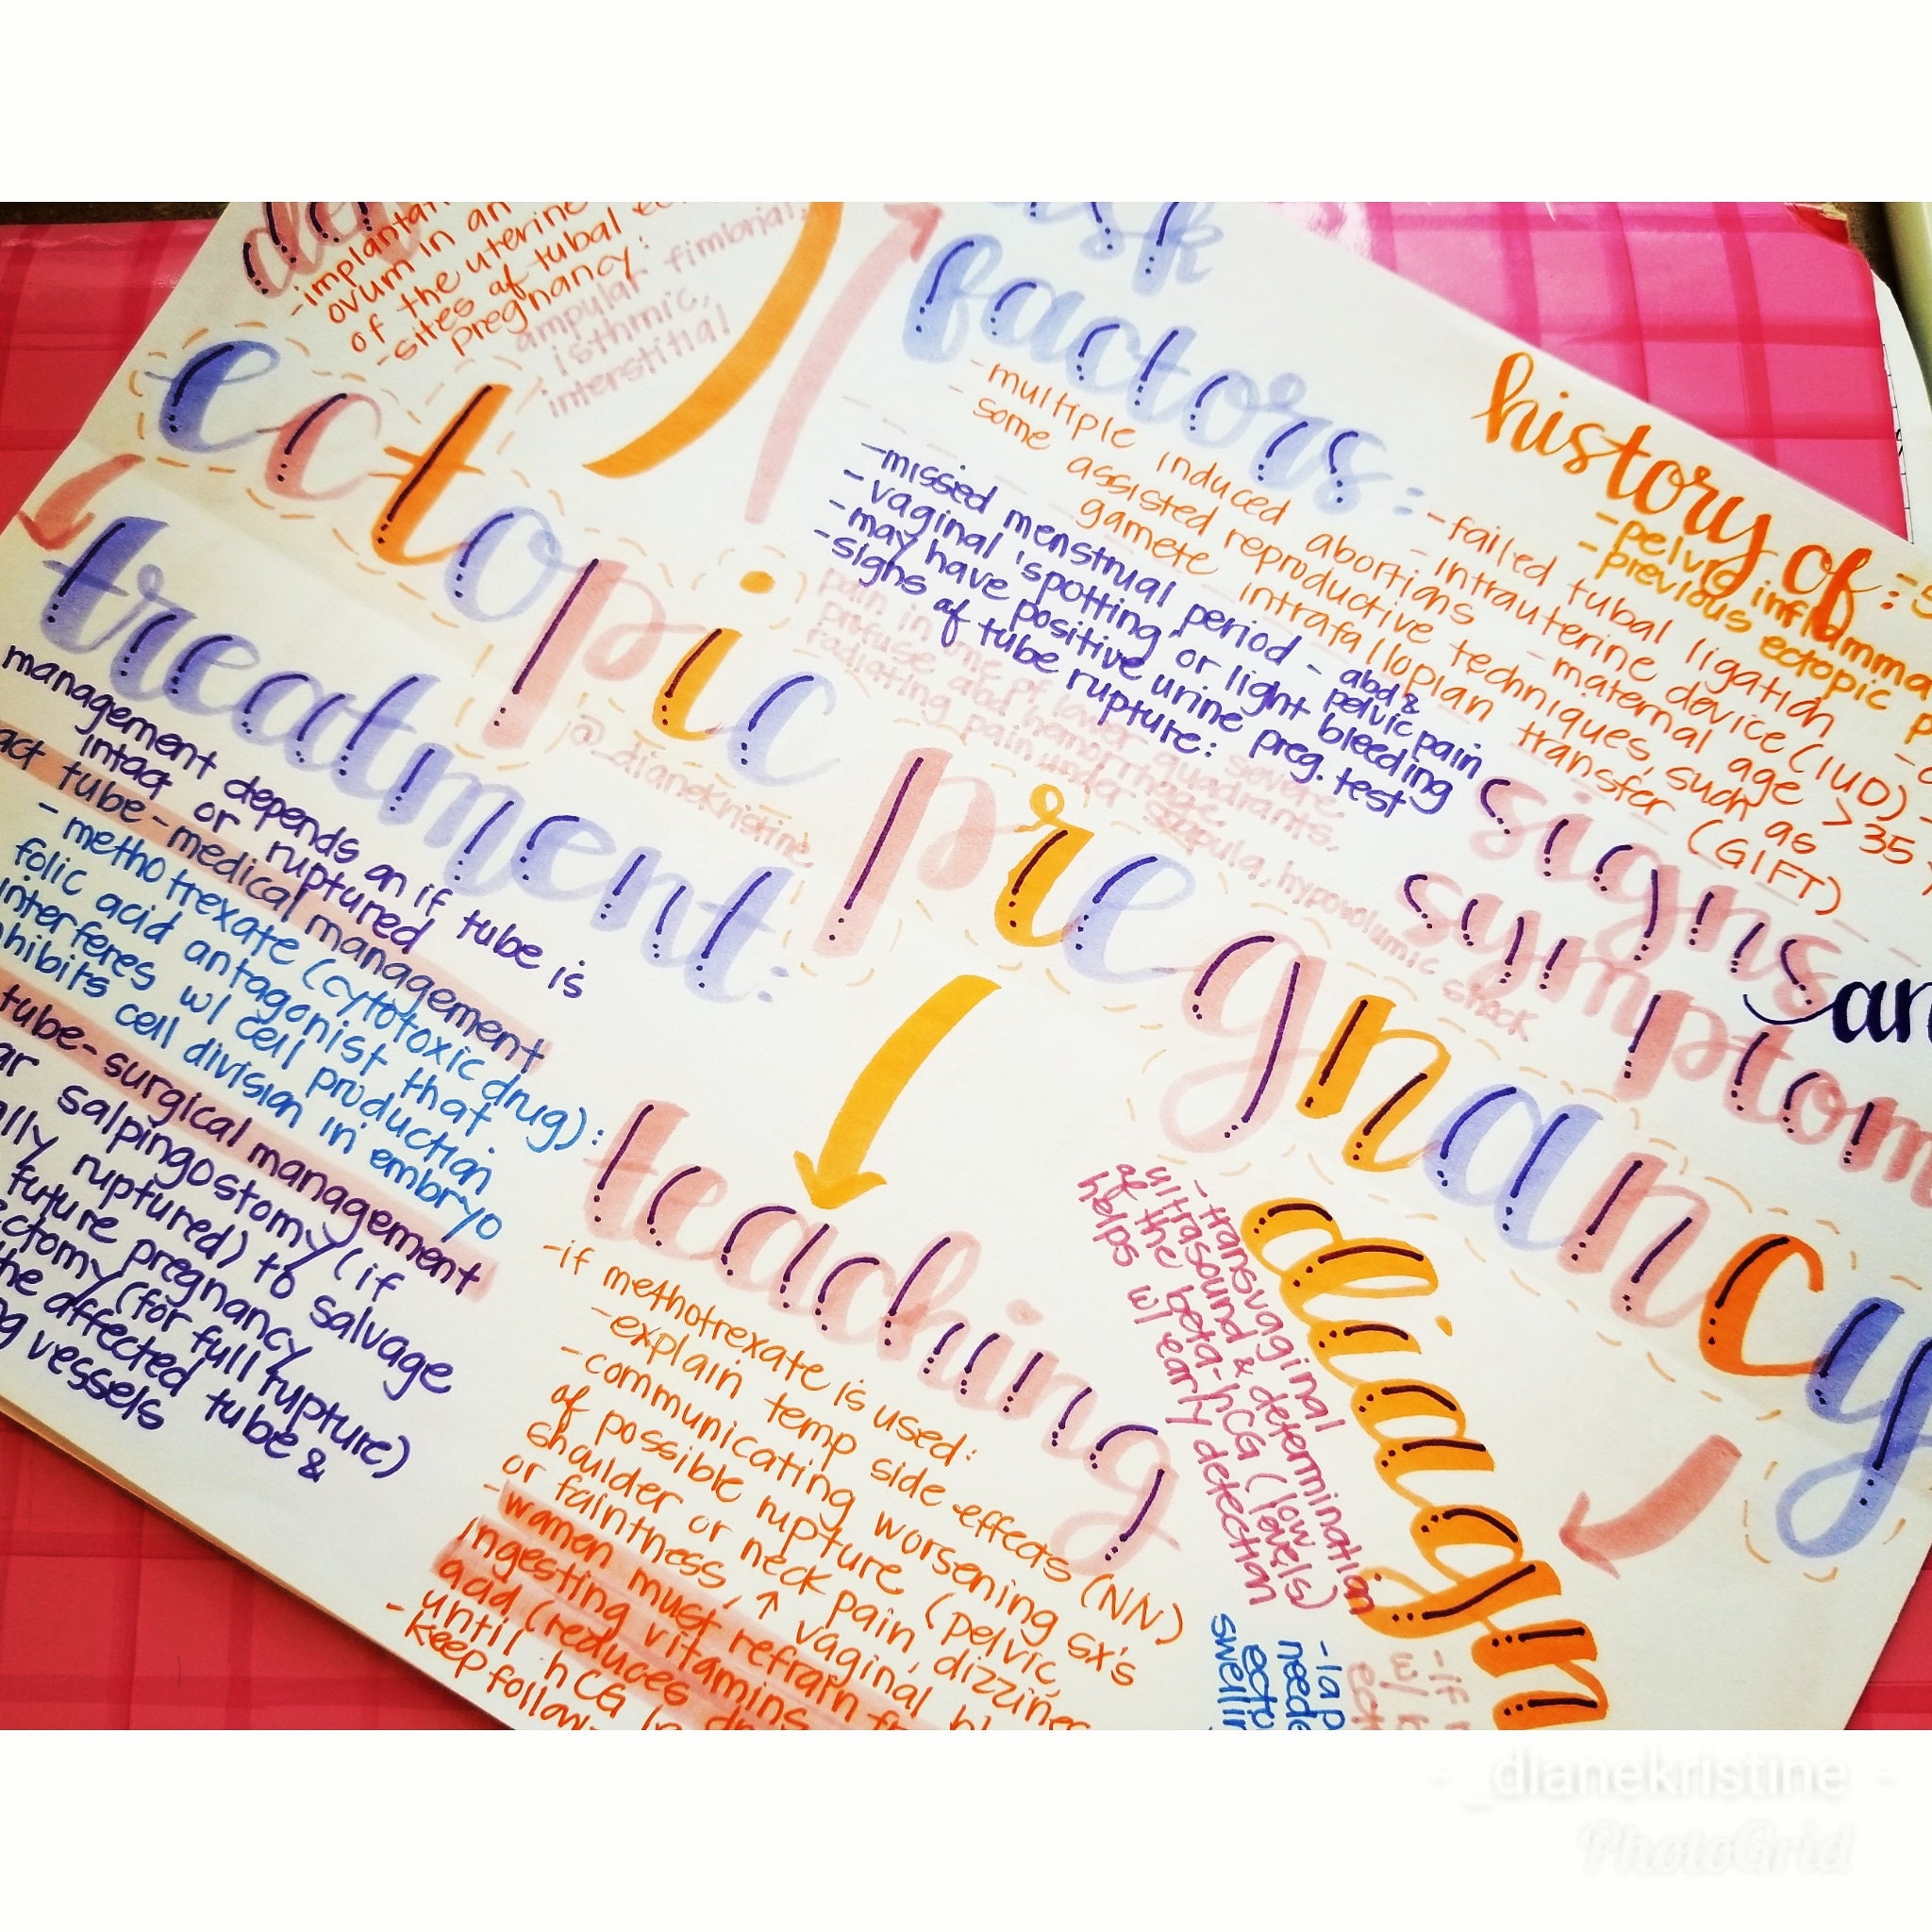 -implantati
ovum in an
of the uterine
-sites of tubal
pregnancy:
ampular fimbrial,
isthmic,
interstitial
risk
factors:
-multiple induced abortions
-some assisted reproductive techniques, such as
gamete intrafallopian transfer (GIFT)
-failed tubal ligation
-intrauterine device (IUD)
-maternal age >35
history of:
-pelvic inflamma
-previous ectopic p
ectopic pregnancy
@_dianekristine
-missed menstrual period - abd &
pelvic pain
-vaginal 'spotting' or light bleeding
-may have positive urine preg. test
-signs of tube rupture:
severe
pain in one of lower quadrants,
profuse abd hemorrhage,
radiating pain under scapula, hypovolumic shock
signs an
symptom
treatment:
management depends on if tube is
intact or ruptured
act tube-medical management
-methotrexate (cytotoxic drug):
folic acid antagonist that
interferes w/ cell production
nhibits cell division in embryo
tube-surgical management
ar salpingostomy (if
ally ruptured) to salvage
future pregnancy
ectomy (for full rupture)
he affected tube &
ng vessels
teaching
-if methotrexate is used:
-explain temp side-effects (N/V)
-communicating worsening sx's
of possible rupture (pelvic,
shoulder or neck pain, dizzines
or faintness, ↑ vaginal bl
-women must refrain fr
ingesting vitamins
acid (reduces dr
until hCG le
-keep follow-
diagn
-transvaginal
ultrasound & determination
of the beta-hCG (low levels)
helps w/ early detection
-lap
neede
ecto
swellin
-if
w/
ect
- _dianekristine -
PhotoGrid